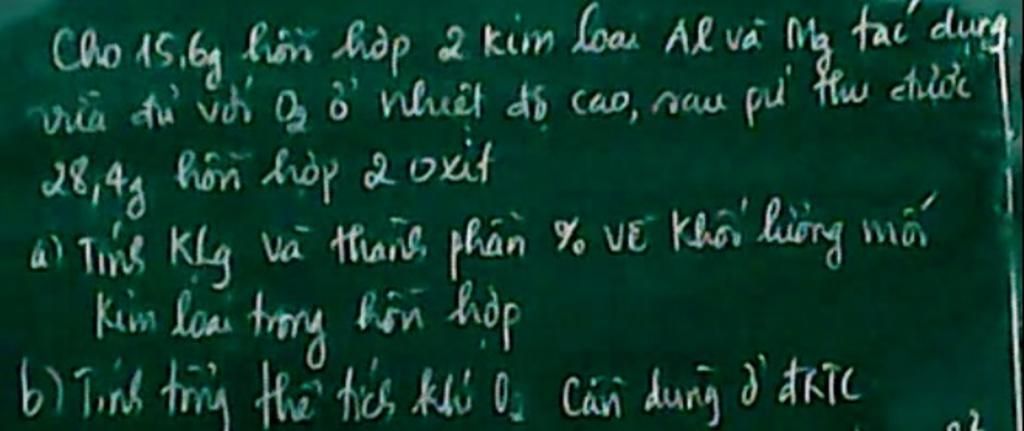 Cho 15,6g hỗn hợp 2 kim loại Al và Mg tác dụng
vừa đủ với O2 ở nhiệt độ cao, sau pư thu được
28,4g hỗn hợp 2 oxit
a) Tính KLg và thành phần % về khối lượng mỗi
kim loại trong hỗn hợp
b) Tính tổng thể tích khí O2 cần dùng ở đktc